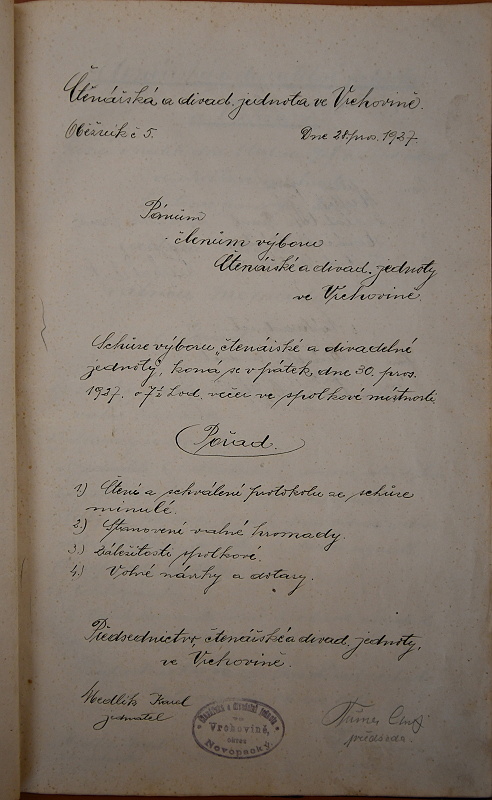 Čtenářská a divad. jednota ve Vrchovině.
Oběžník č 5.
Dne 28. pros. 1927.
Pánům
členům výboru
Čtenářské a divad. jednoty
ve Vrchovině.
Schůze výboru „čtenářské a divadelné
jednoty", koná se v pátek, dne 30. pros.
1927. o 7½ hod. večer ve spolkové místnosti.
Pořad.
1.) Čtení a schválení protokolu ze schůze
minulé.
2.) Stanovení valné hromady.
3.) Záležitosti spolkové.
4.) Volné návrhy a dotazy.
Předsednictvo čtenářské a divad. jednoty,
ve Vrchovině.
Medlík Karel
jednatel
Čtenářská a divadelní jednota
Vrchovině,
okres
Novopacký
předseda